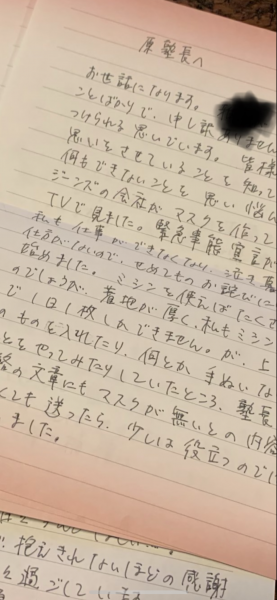 原塾長へ
お世話になります。
ことばかりで、申し訳ありません
つけられる思いでいます。皆様
思いをさせていることを知って
何もできないことを思い悩ん
ジーンズの会社がマスクを作って
TVで見ました。緊急事態宣言が
私も仕事ができなくなり、泣き寝
仕方がないので、せめてものお詫びに
始めました。ミシンを使えばたくさ
のでしょうが、着地が厚く、私もミシン
で1日1枚しかできません。が、上
のものを入れたり、何とか手ぬいな
とをやってみたりしていたところ、塾長
整の文章にもマスクが無いとの内容
くても送ったら、少しは役立つのでは
ました。
抱えきれないほどの感謝
々過ごしています